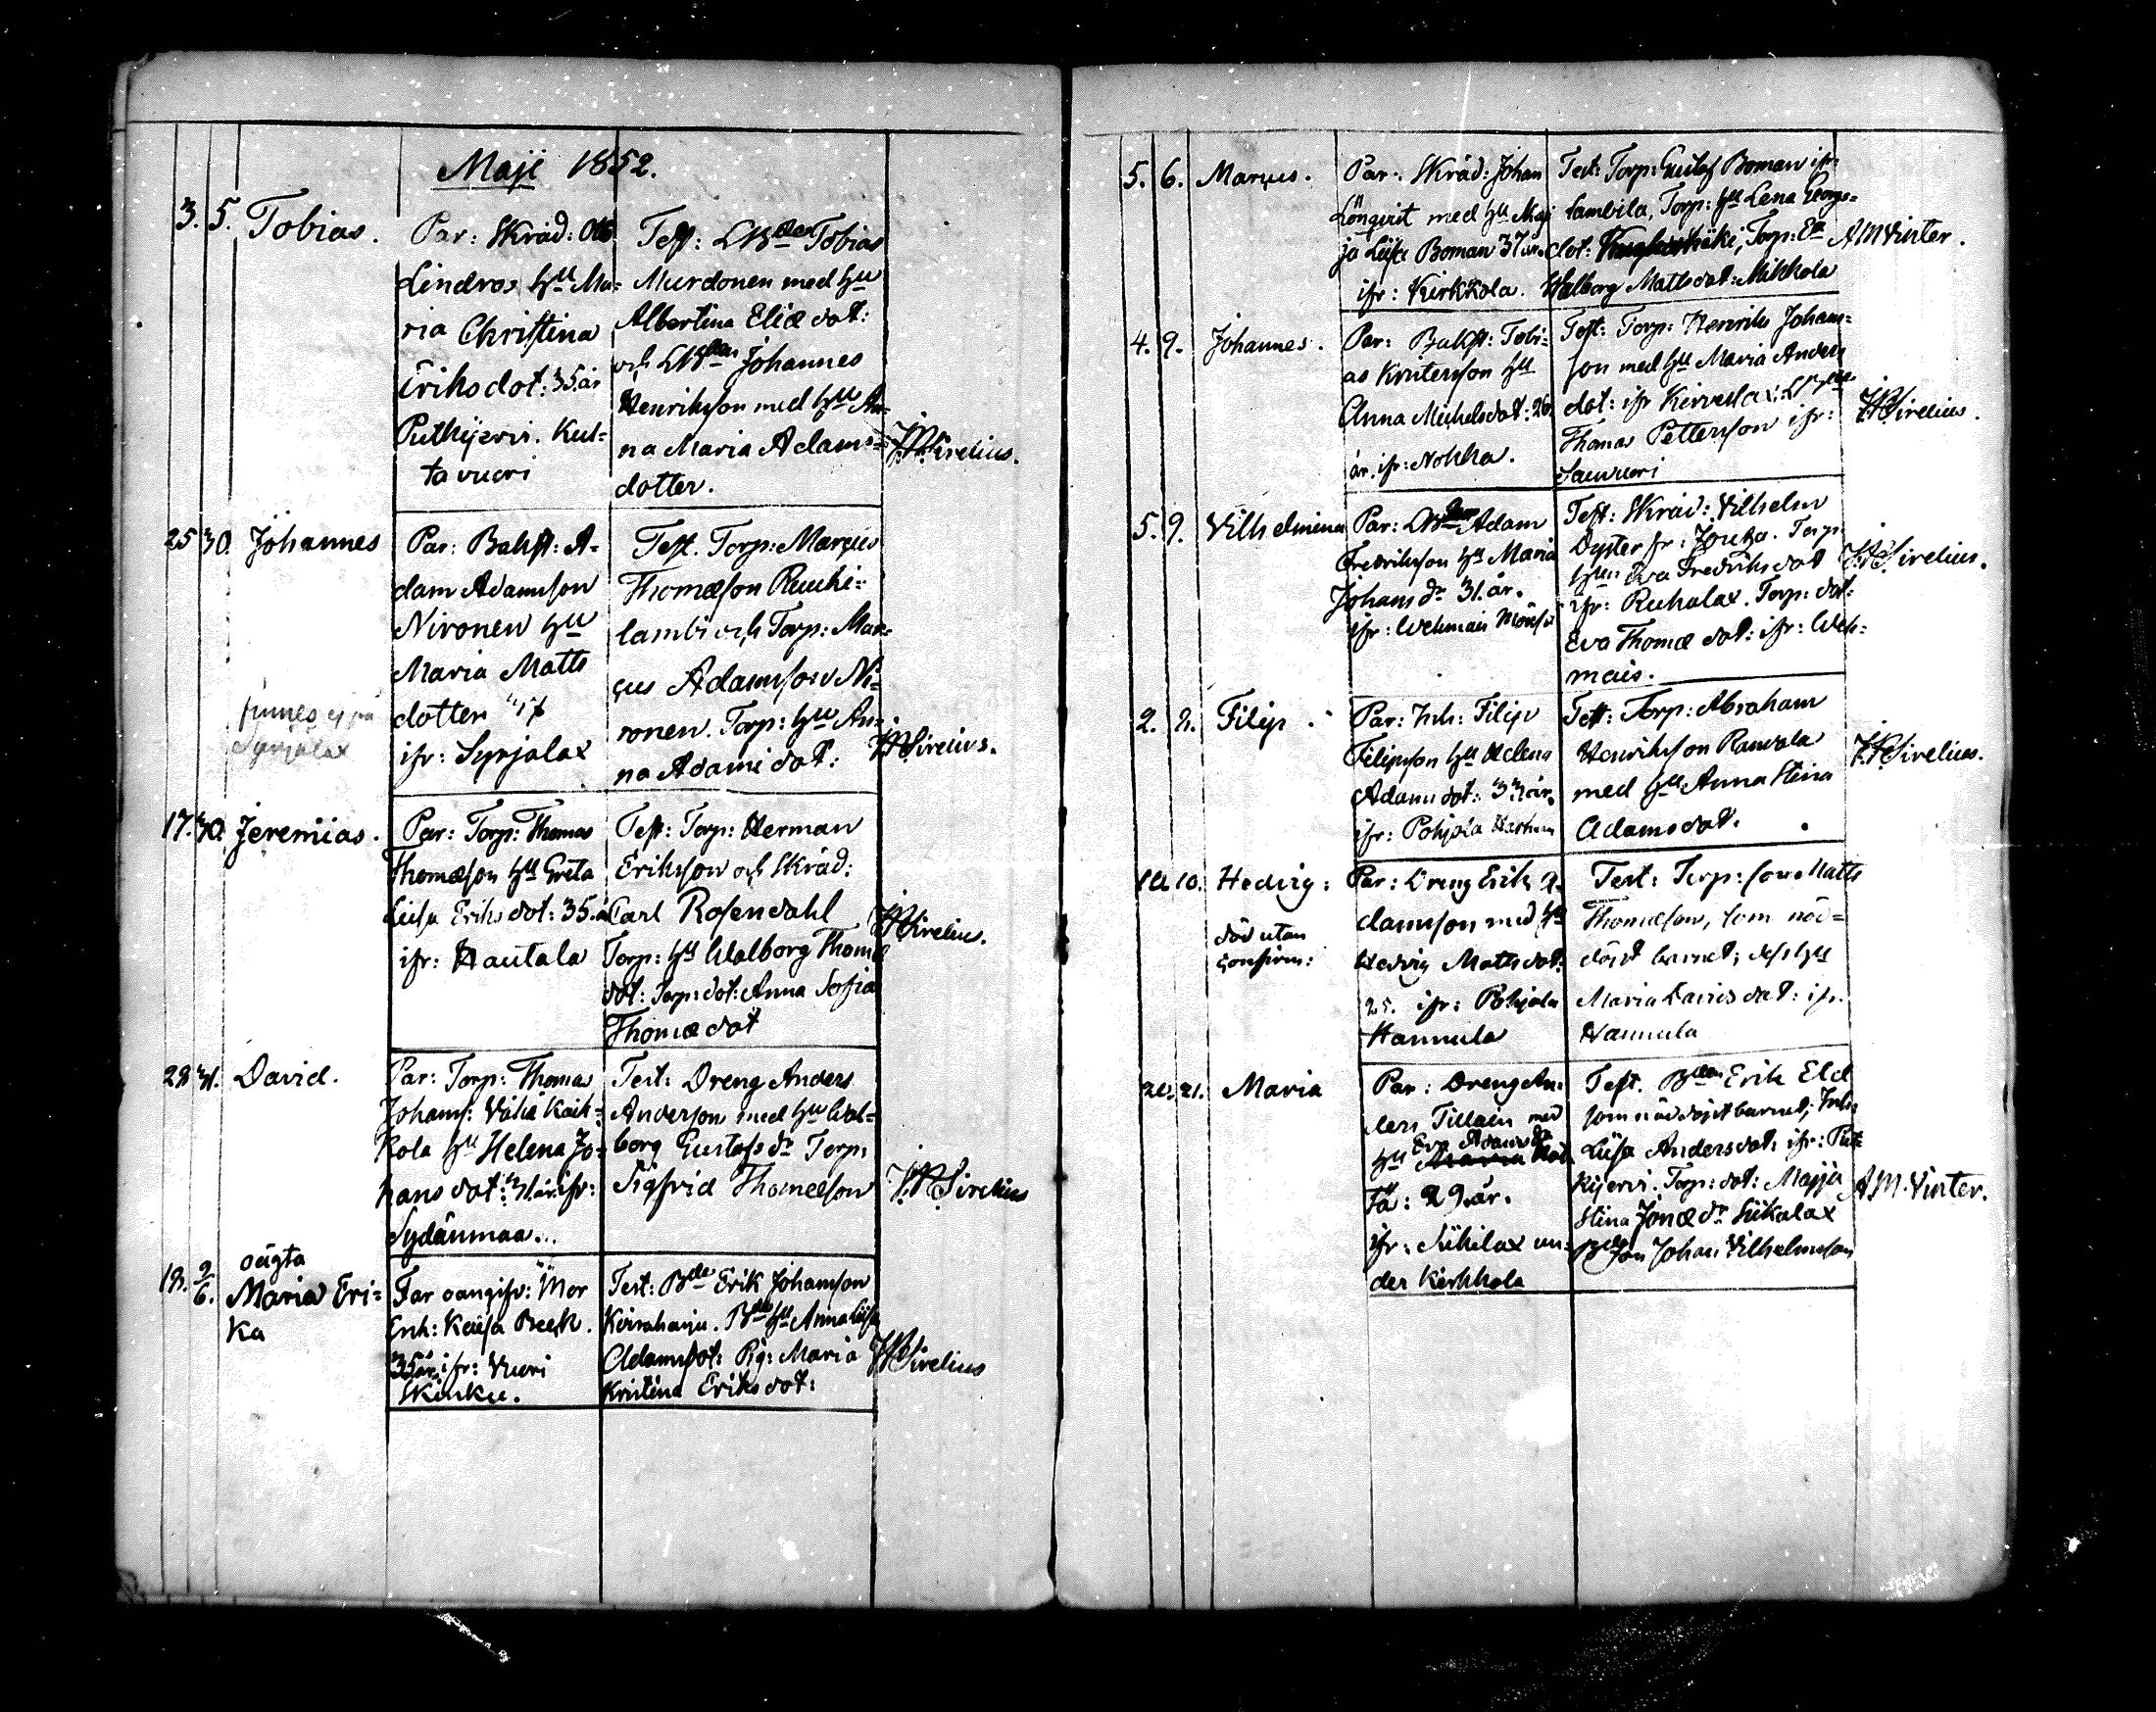 Maji 1852.
3. 5. Tobias.
Par: Skräd: Otto
Lindros hu Ma-
ria Christina
Eriksdot: 35 år
Putkijervi. Kul-
ta vuori
Test: LBden Tobias
Murdonen med hu
Albertina Eliæ dot:
och LBden Johannes
Henriksson med hu An-
na Maria Adams-
dotter.
Sirelius.
25 30. Johannes
finnes ej på
Syrjälax
Par: Bakst: A-
dam Adamsson
Nironen hu
Maria Matts
dotter
ifr: Syrjälax
Test. Torp: Marcus
Thomæson Ruuhi-
lambi och Torp: Mar-
cus Adamsson Ni-
ronen. Torp: hu An-
na Adami dot:
Sirelius.
17. 30. Jeremias.
Par: Torp: Thomas
Thomæson hu Greta
Luisa Eriksdot: 35. år
ifr: Hautala
Test: Torp: Herman
Eriksson och Skräd:
Carl Rosendahl
Torp: hu Walborg Thomæ
dot: Torp: dot: Anna Sofia
Thomæ dot
Sirelius.
28 31. David.
Par: Torp: Thomas
Johans: Vähä Kaik-
kola hu Helena Jo-
hans dot: 31. år. ifr:
Sydänmaa.
Test: Dreng Anders
Anderson med hu Wal-
borg Gustafs dr Torp:
Sigfrid Thomæson
Sirelius
18. 9/6. oägta
Maria Eri-
ka
Far oangifv: Mor
Enk: Kaisa Beck.
35 år. ifr: Vuori
Skinku.
Test: Bde Erik Johanson
Kirraharju. Bde hu Anna Luisa
Adamsdot: Pig: Maria
Kristina Eriksdot:
Sirelius
5. 6. Marcus.
Par: Skräd: Johan
Lönqvist med hu Maj
ja Luisa Boman 37 år.
ifr: Kirkkola.
Test: Torp: Gustaf Boman ifr:
Lambila, Torp: hu Lena Georgs-
dot: Torp: Ea
Walborg Mattsdot: Mikkola
A M Vinter.
4. 9. Johannes.
Par: Bakst: Tobi-
as Kristersson hu
Anna Michelsdot: 26
år. ifr: Nokka.
Test: Torp: Henrik Johans-
son med hu Maria Anders
dot: ifr Kirveslax:
Thomas Petterson ifr:
Sauvuori
Sirelius.
5. 9. Vilhelmina
Par: LBden Adam
Fredriksson hu Maria
Johans dr 31. år.
ifr: Wehmais
Test: Skräd: Vilhelm
Dyster fr: Torp:
hu Eva Fredriksdot
ifr: Ruhalax. Torp: dot:
Eva Thomæ dot: ifr: Weh-
mais.
Sirelius.
2. 9. Filip.
Par: Inh: Filip
Filipson hu Helena
Adams dot: 33 år.
ifr: Pohjola
Test: Torp: Abraham
Henriksson Rauvala
med hu Anna Stina
Adamsdot.
Sirelius.
10 10. Hedvig:
död utan
confirm:
Par: Dreng Erik A-
damsson med hu
Hedvig Mattsdot:
25. ifr: Pohjola
Hannula
Test: Torp: son Matts
Thomæson, som nöd-
döpt barnet; dess hu
Maria Davidsdot: ifr.
Hannula
20. 21. Maria
Par: Dreng An-
ders Tillain med
hu Eva Adams dr
29. år.
ifr: Siikilax un-
der Kirkkola
Test. Bden Erik Eld
som nöddöpt barnet; Inh:
Luisa Andersdot: ifr: Put-
kijervi. Torp: dot: Majja
Stina Jonæ dr Siikalax
Bdeson Johan Vilhelmsson
A M. Vinter.